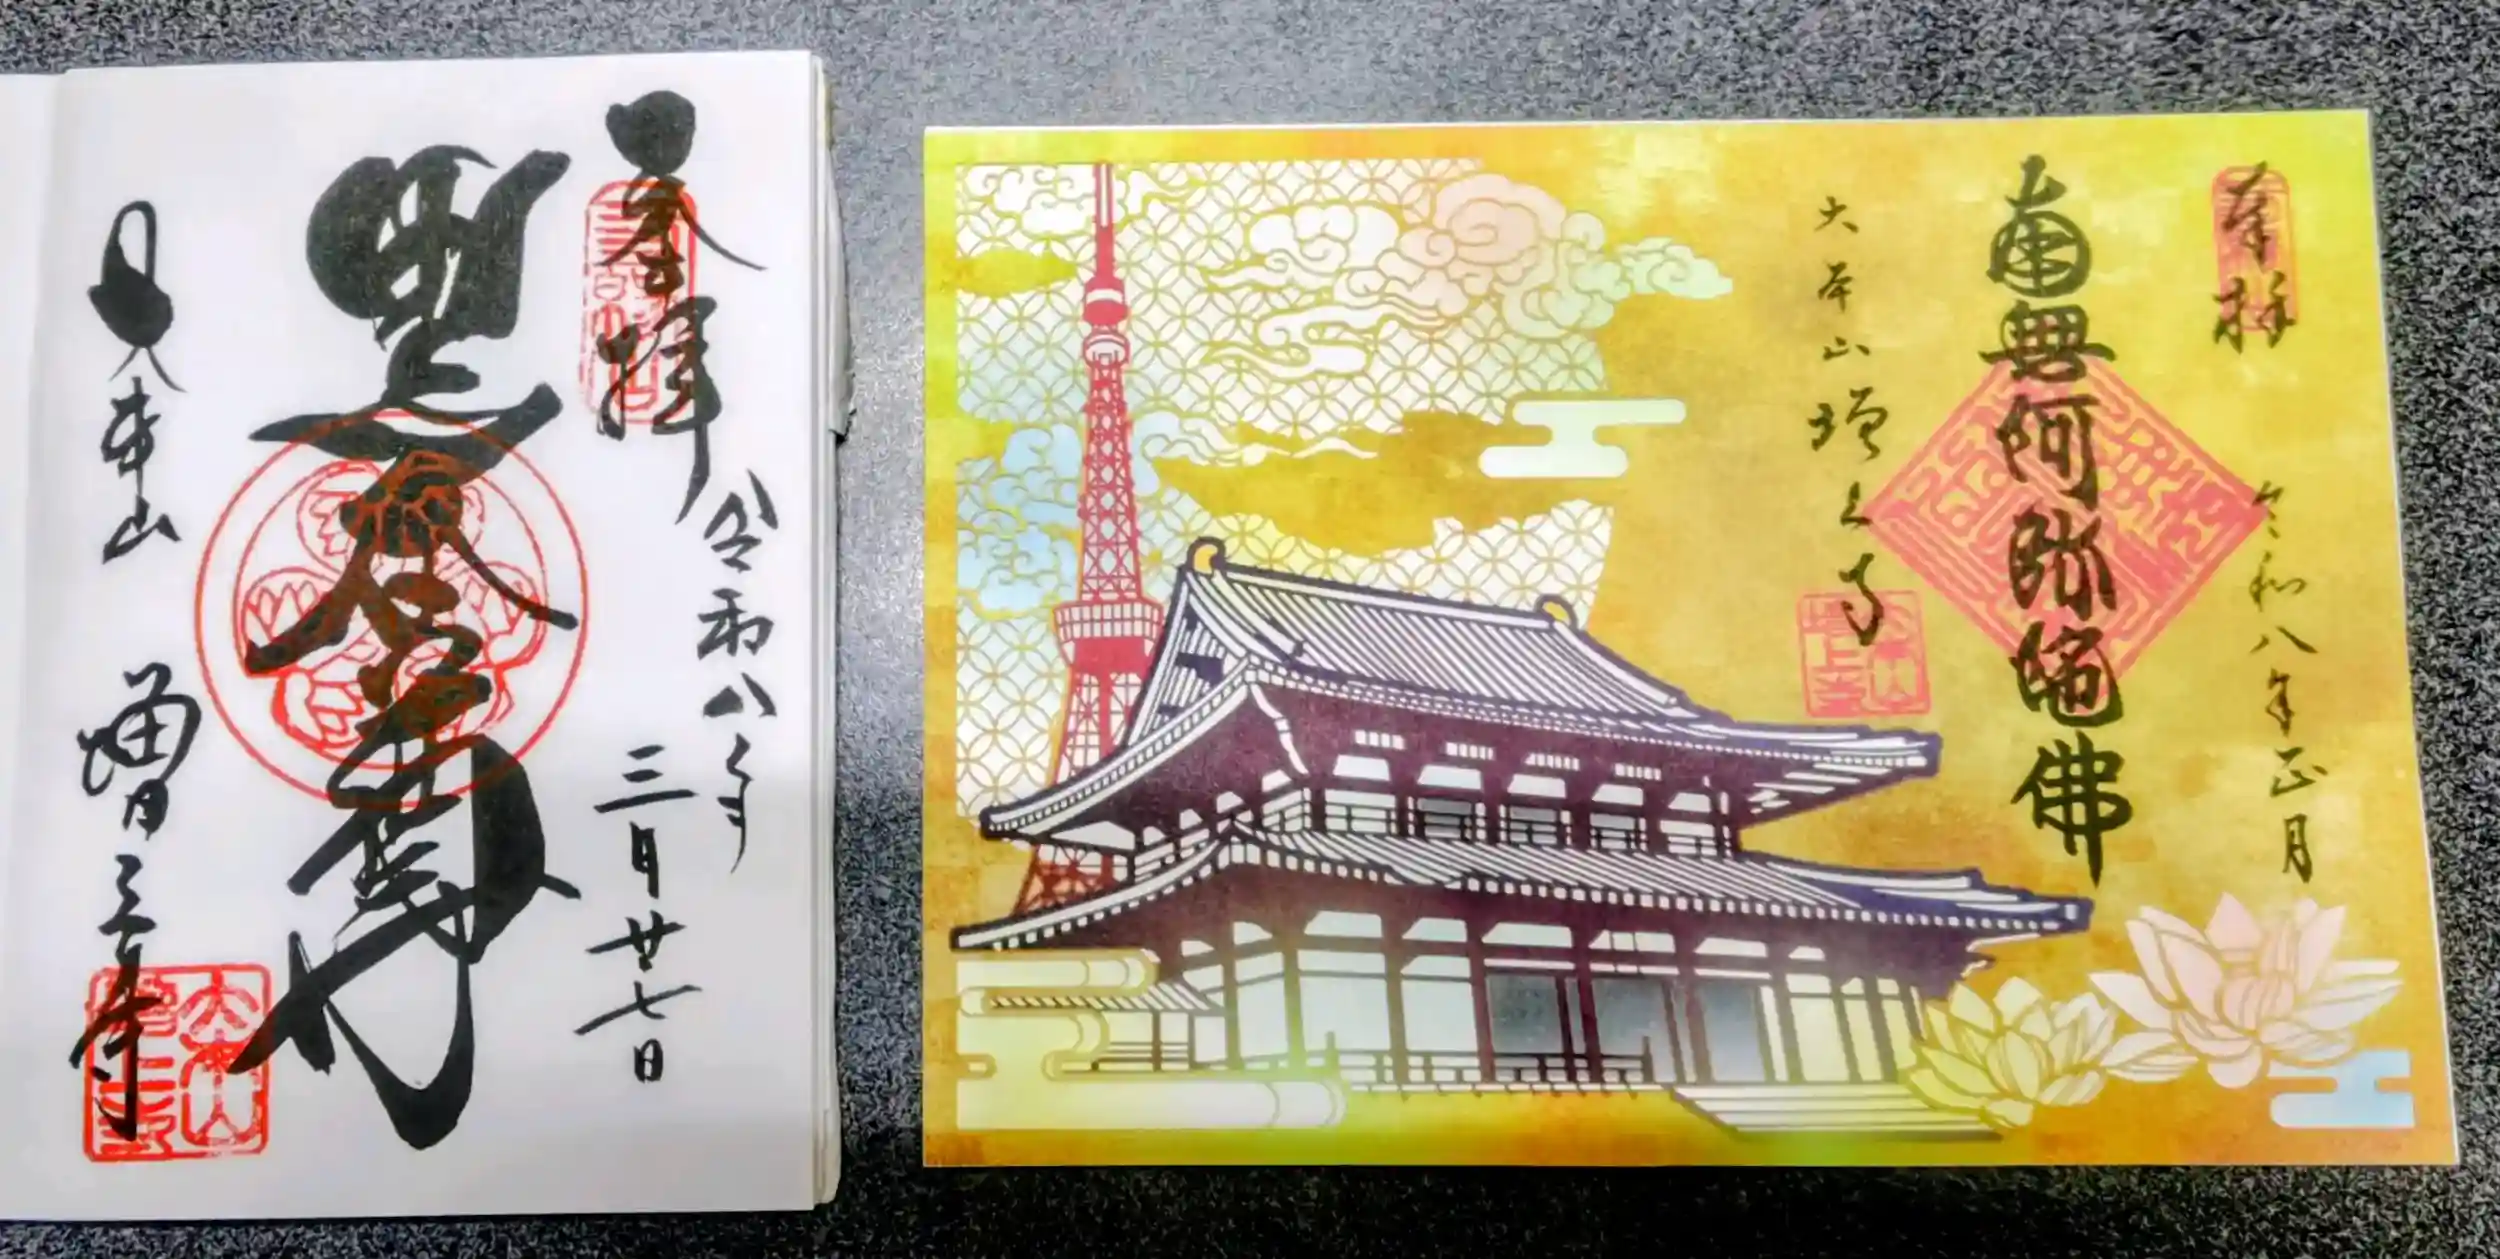 奉拝
令和八年
三月廿七日
黒本尊
大本山
増上寺
奉拝
令和八年正月
南無阿弥陀佛
大本山
増上寺